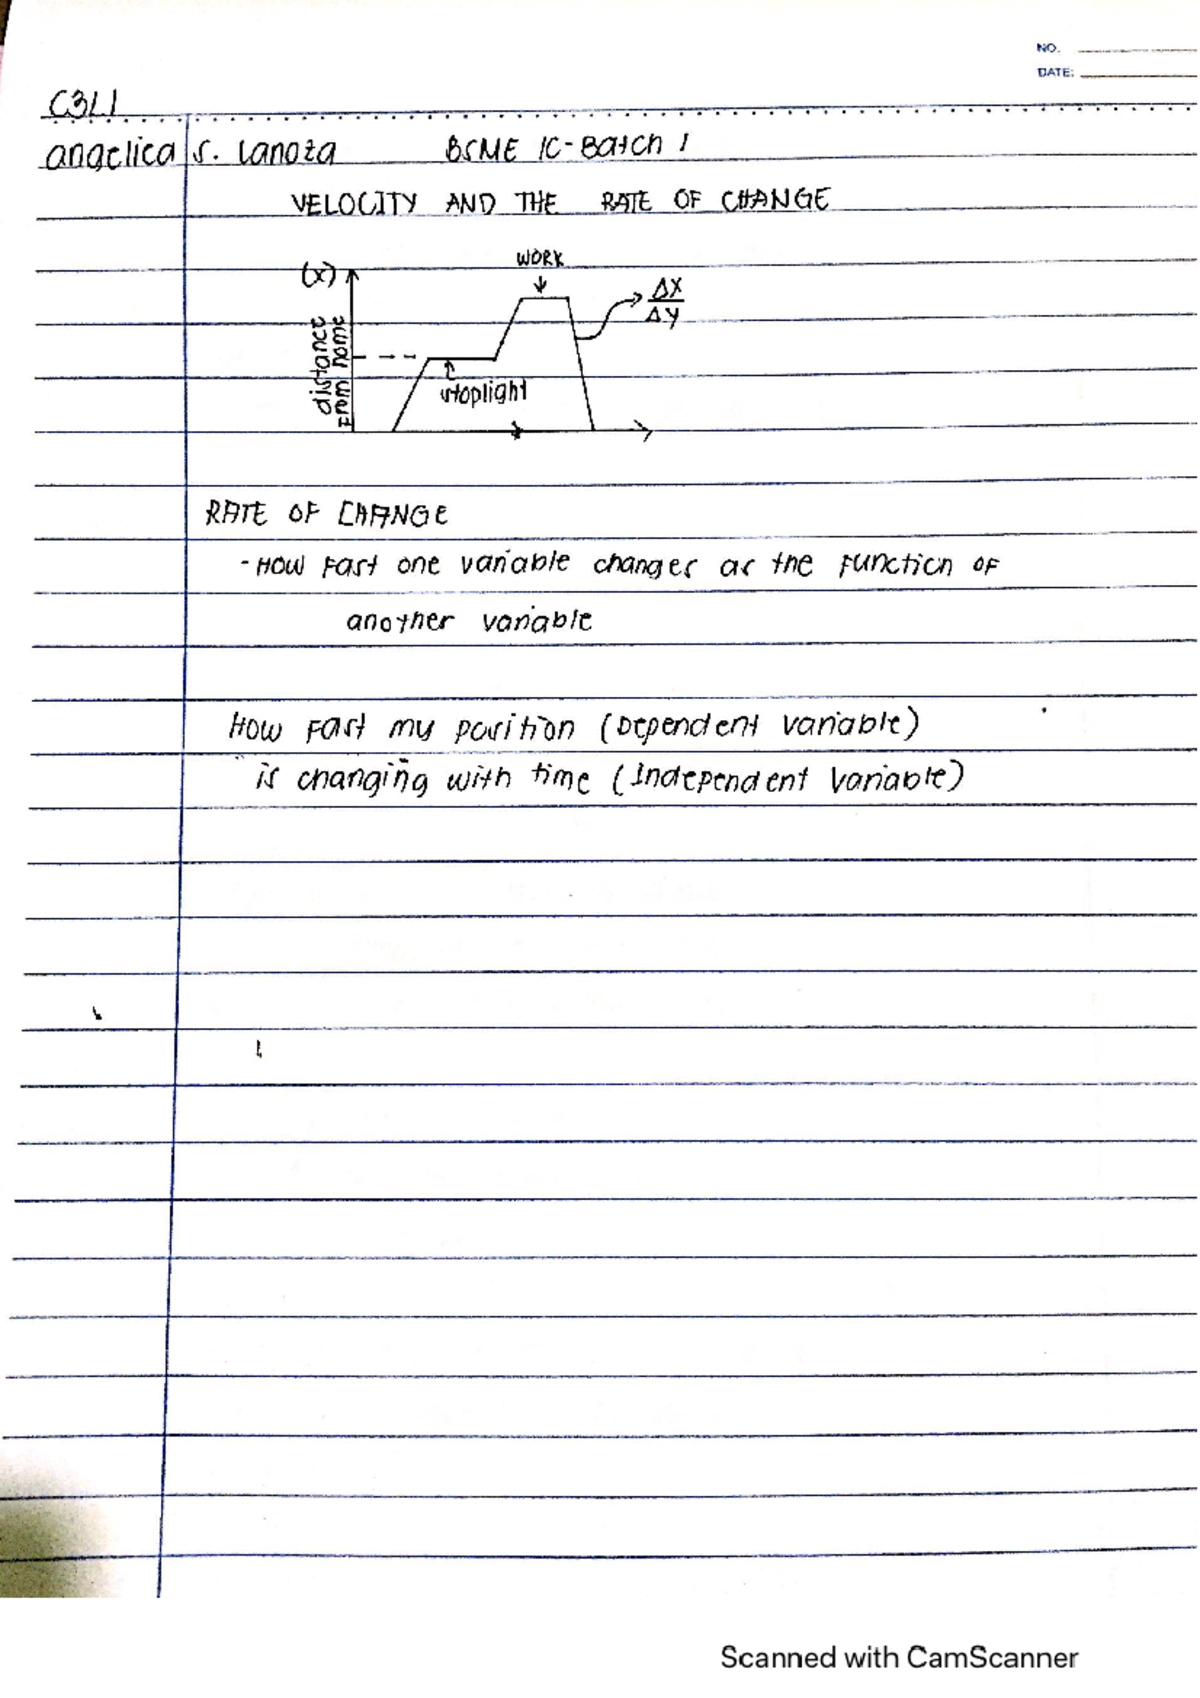 NO.
DATE:
C3L1
angelica S. Lanoza BSME 1C-Batch 1
VELOCITY AND THE RATE OF CHANGE
WORK
(x)
ΔX
ΔY
distance
From home
stoplight
RATE OF CHANGE
- HOW Fast one variable changes as the Function OF
another variable
How Fast my position (Dependent variable)
is changing with time (Independent Variable)
Scanned with CamScanner